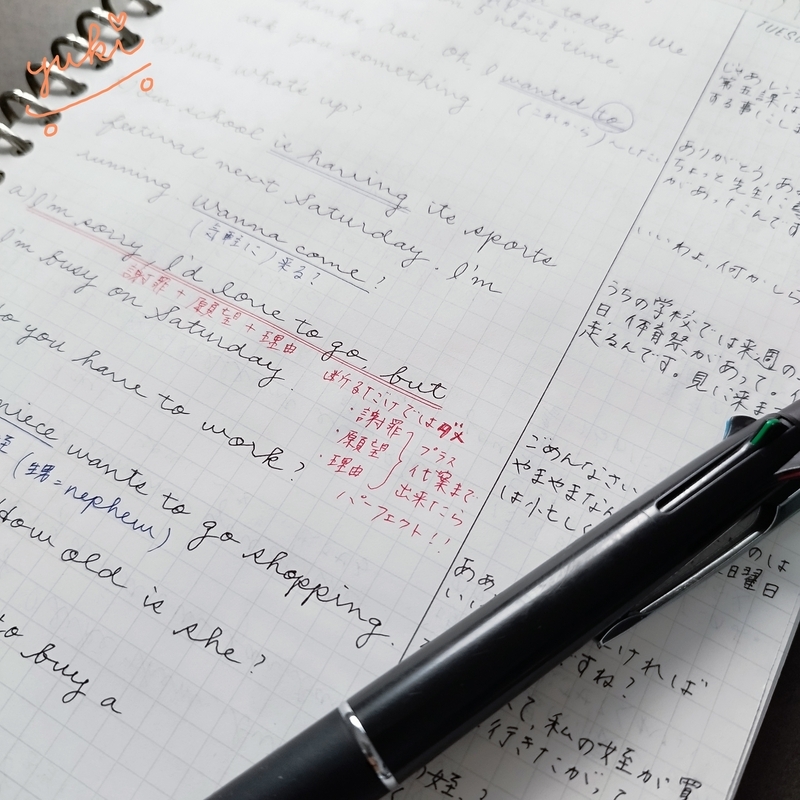 yuki
for today. We
next time.
oh I wanted to
ask you something.
(これから)～したい
what's up?
our school is having its sports
festival next Saturday. I'm
running. Wanna come?
(気軽に)来る?
a) I'm sorry, I'd love to go but
謝罪+願望+理由
I'm busy on Saturday.
断るだけではダメ
・謝罪
・願望
・理由
プラス
代案まで
出来たら
パーフェクト!!
do you have to work?
niece wants to go shopping.
姪 (甥=nephew)
How old is she?
to buy a
TUES
じゃあ、レッ
第五課は
する事にし
ありがとう、あ
ちょっと先生に
があったんです
いいわよ、何かしら
うちの学校では来週の
日 体育祭があって。
走るんです。見に来ま
ごめんなさい
やまやまなん
は忙しく
のは
日曜日
ああ
よければ
ですね?
私の姪が買
行きたがって
姪